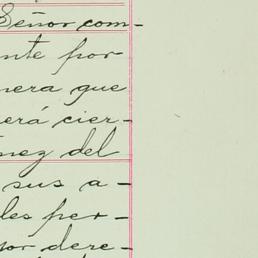 Señor com-
nte por
nera que
erá cier-
nez del
sus a-
les per-
por dere-